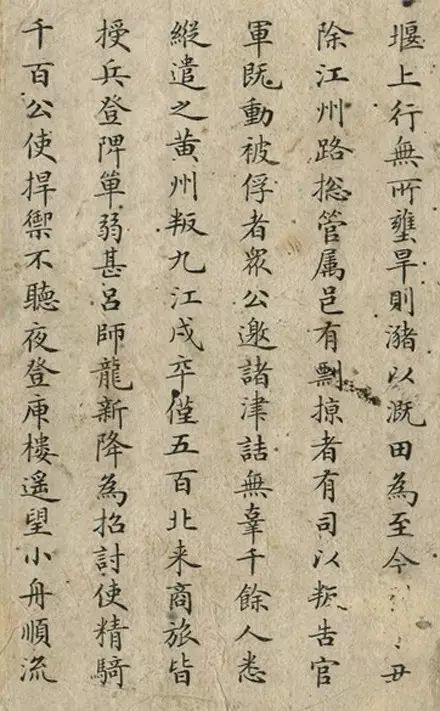 堰上行無所壅旱則瀦以溉田為至今
丑
除江州路捴管属邑有剽掠者有司以叛告官
軍既動被俘者衆公邀諸津詰無辜千餘人悉
縱遣之黃州叛九江戍卒僅五百北来商旅皆
授兵登陴單弱甚呂師龍新降為招討使精騎
千百公使捍禦不聽夜登庾樓遥望小舟順流